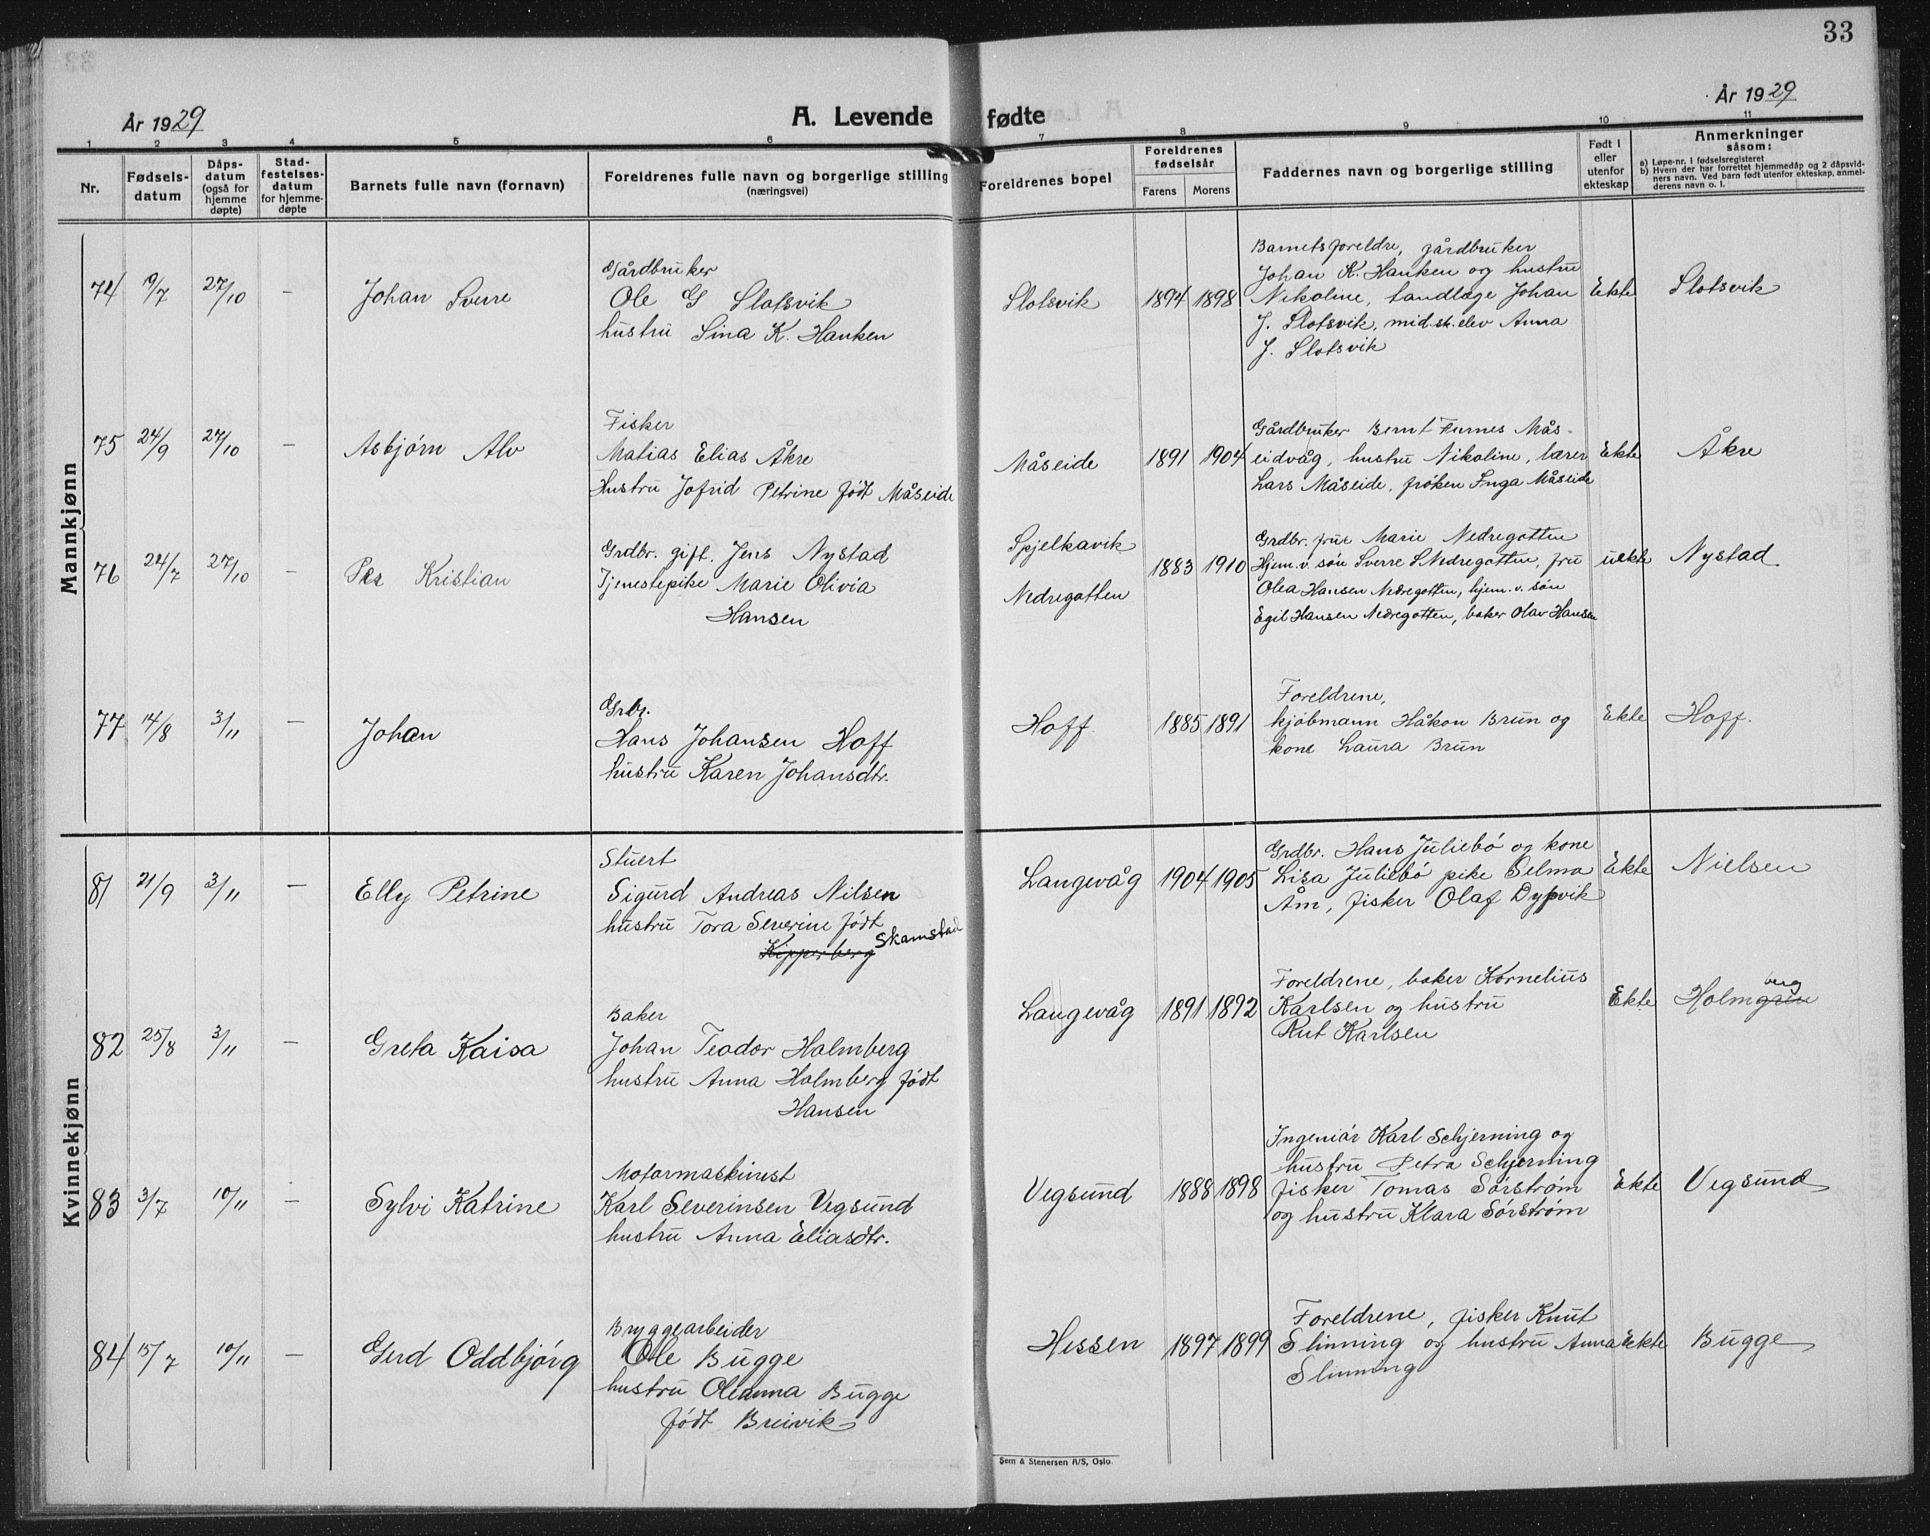 33
År 1929
A. Levende fødte
År 1929
1 2 3 4 5 6 7 8 9 10 11
Nr.
Fødsels-
datum
Dåps-
datum
(også for
hjemme
døpte)
Stad-
festelses-
datum
for hjemme-
døpte
Barnets fulle navn (fornavn)
Foreldrenes fulle navn og borgerlige stilling
(næringsvei)
Foreldrenes bopel
Foreldrenes
fødselsår
Farens Morens
Faddernes navn og borgerlige stilling
Født i
eller
utenfor
ekteskap
Anmerkninger
såsom:
a) Løpe-nr. i fødselsregisteret
b) Hvern der har forrettet hjemmedåp og 2 dåpsvid-
ners navn. Ved barn født utenfor ekteskap, anmel-
derens navn o. l.
Mannkjønn
74 19/7 27/10 —
Johan Sverre
Gårdbruker
Ole G Slotsvik
hustru Sina K. Hanken
Slotsvik
1894 1898
Barnets foreldre, gårdbruker
Johan K. Hanken og hustru
Nikoline, tandlæge Johan
J. Slotsvik, mid.sk. elev Anna
J. Slotsvik
Ekte
Slotsvik
75 24/9 27/10 —
Asbjørn Alv
Fisker
Matias Elias Åkre
Hustru Jofrid Petrine født Måseide
Måseide
1891 1904
Gårdbruker Bernt Furnes Mås-
eidvåg, hustru Nikoline, lærer
Lars Måseide, frøken Inga Måseide
Ekte
Åkre
76 24/7 27/10 —
Per Kristian
Grdbr. gift. Jens Nystad
Tjenestepike Marie Olivia
Hansen
Spjelkavik
Nedregotten
1883 1910
Grdbr. frue Marie Nedregotten
Hjem.v. søn Sverre S Nedregotten, fru
Olea Hansen Nedregotten, hjem.v. søn
Egil Hansen Nedregotten, baker Olav Hansen
uekte
Nystad
77 14/8 3/11 —
Johan
Grbr.
Hans Johansen Hoff
hustru Karen Johansdtr.
Hoff
1885 1891
Foreldrene,
kjøbmann Håkon Brun og
kone Laura Brun
Ekte
Hoff.
Kvinnekjønn
81 21/9 3/11 —
Elly Petrine
Stuert
Sigurd Andreas Nilsen
hustru Tora Severine født
Kipperberg Skamstad
Langevåg
1904 1905
Grdbr. Hans Juliebø og kone
Lisa Juliebø pike Selma
Åm, fisker Olaf Dypvik
Ekte
Nielsen
82 25/8 3/11 —
Greta Kaisa
Baker
Johan Teodor Halmberg
hustru Anna Holmberg født
Hansen
Langevåg
1891 1892
Foreldrene, baker Kornelius
Karlsen og hustru
Rut Karlsen
Ekte
berg
Holmgren
83 3/7 10/11 —
Sylvi Katrine
Motormaskinist
Karl Severinsen Vegsund
hustru Anna Eliasdtr.
Vegsund
1888 1898
Ingeniør Karl Schjerning og
hustru Petra Schjerning
fisker Tomas Sørstrøm
og hustru Klara Sørstrøm
Ekte
Vegsund
84 15/7 10/11 —
Gerd Oddbjørg
Bryggearbeider
Ole Bugge
hustru Oleanna Bugge
født Breivik
Hessen
1897 1899
Foreldrene, fisker Knut
Slinning og hustru Anna
Slinning
Ekte
Bugge
Sem & Stenersen A/S, Oslo.